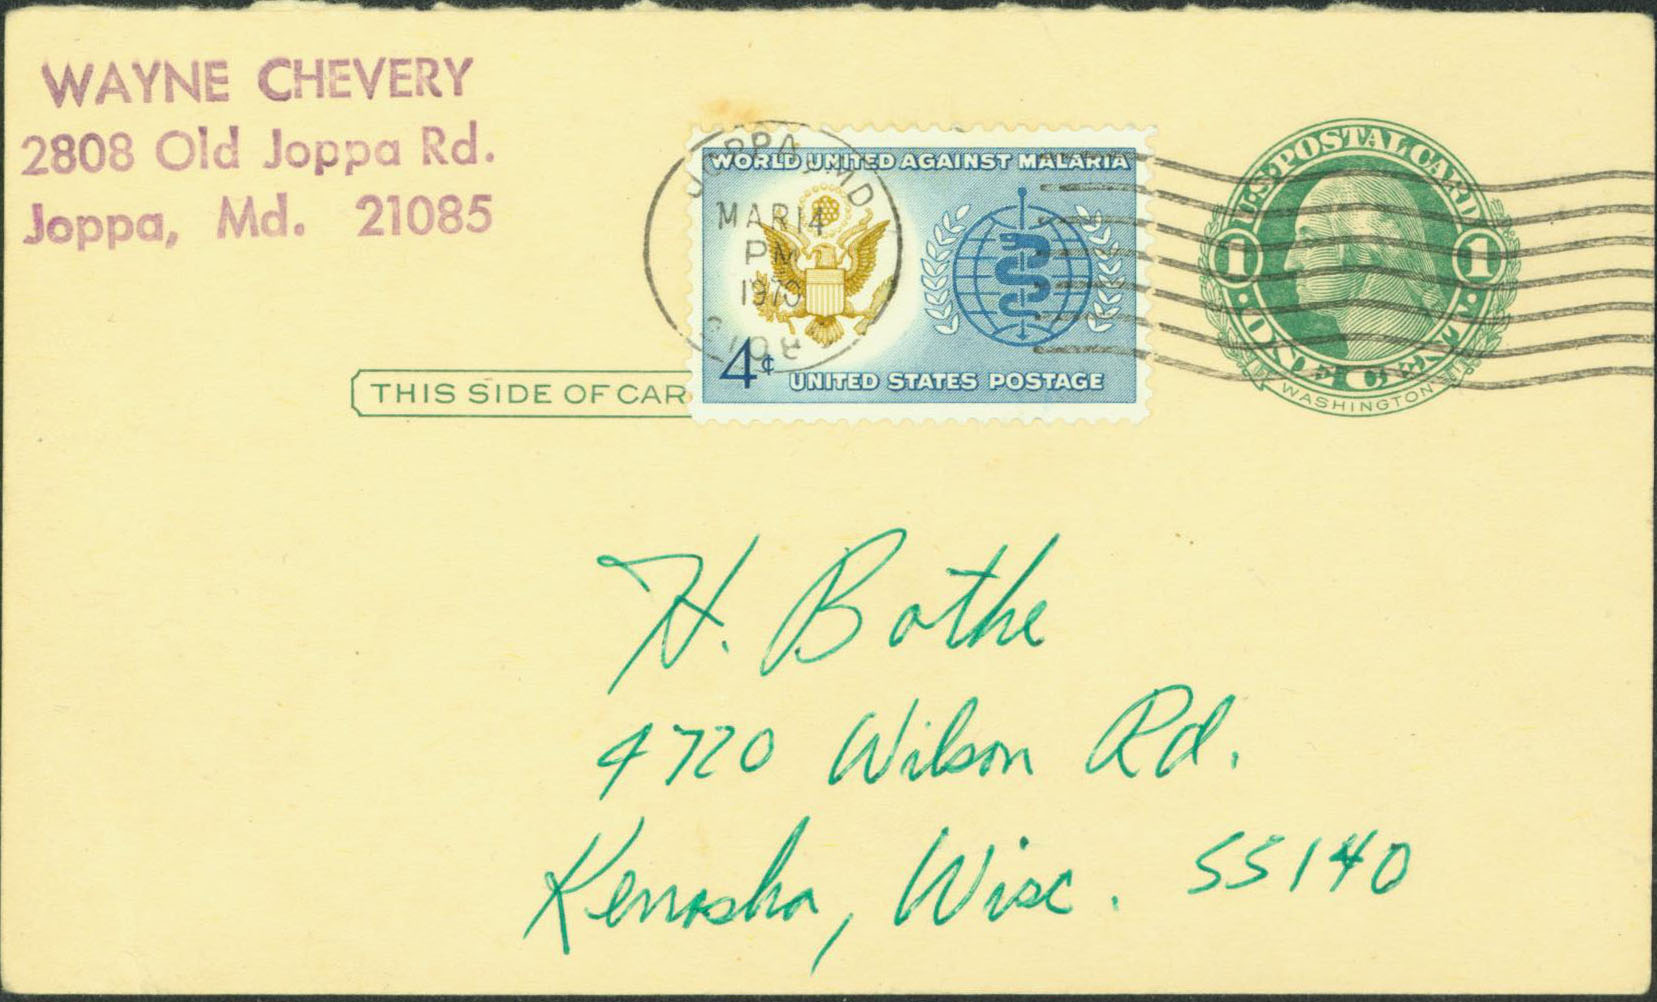 WAYNE CHEVERY
2808 Old Joppa Rd.
Joppa, Md. 21085
JOPPA, MD
MAR 14
PM
21085
WORLD UNITED AGAINST MALARIA
4¢ UNITED STATES POSTAGE
U.S. POSTAL CARD
1 1
ONE CENT
WASHINGTON
THIS SIDE OF CAR
H. Bothe
4720 Wilson Rd.
Kenosha, Wisc. 55140